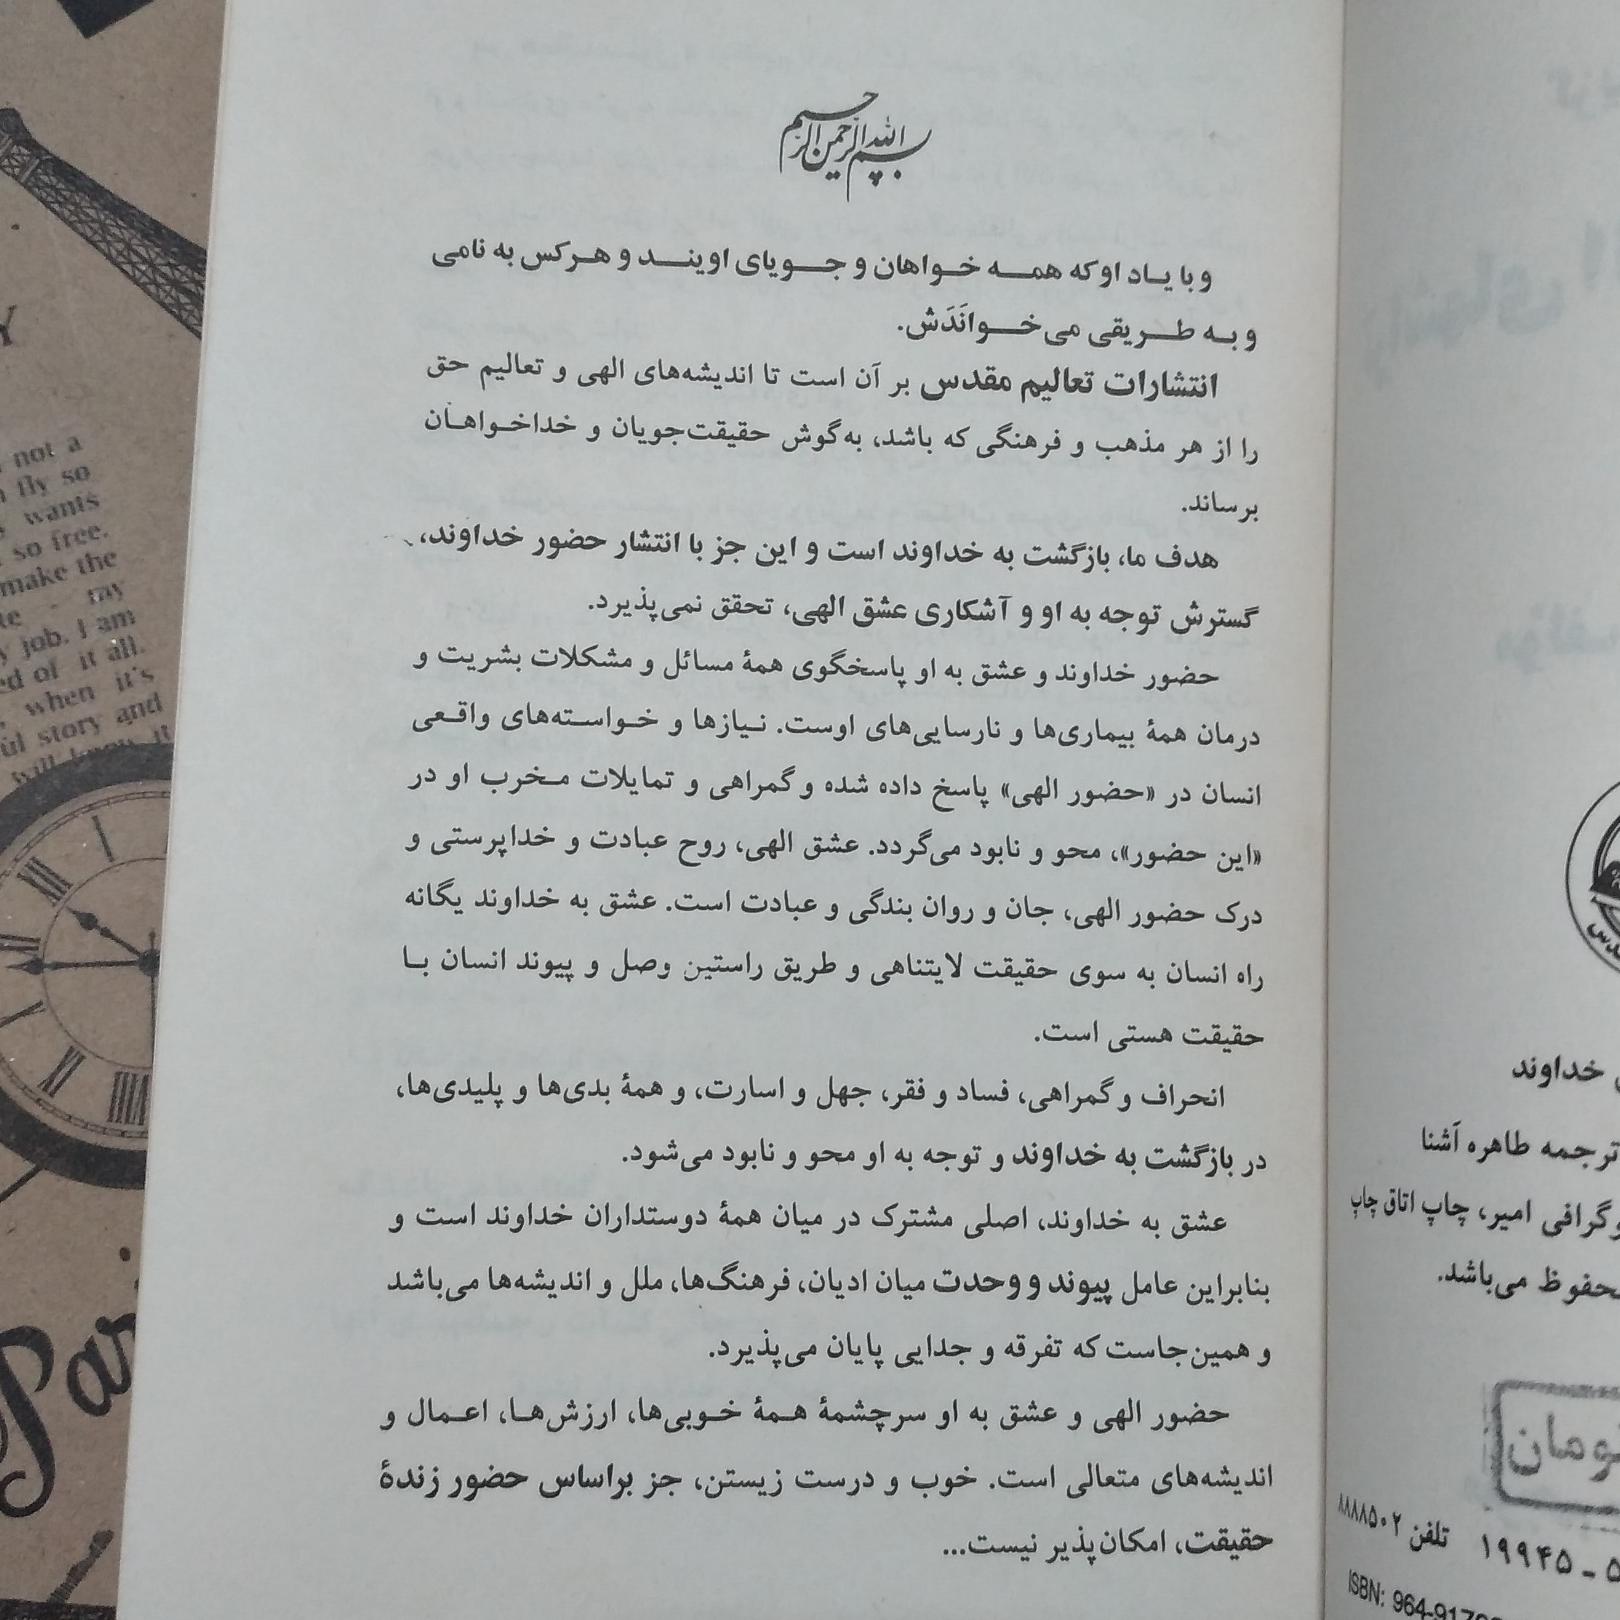 بسم الله الرحمن الرحیم
و با یاد او که همه خواهان و جویای اویند و هرکس به نامی
و به طریقی می‌خوانَدَش.
انتشارات تعالیم مقدس بر آن است تا اندیشه‌های الهی و تعالیم حق
را از هر مذهب و فرهنگی که باشد، به‌گوش حقیقت‌جویان و خداخواهان
برساند.
هدف ما، بازگشت به خداوند است و این جز با انتشار حضور خداوند،
گسترش توجه به او و آشکاری عشق الهی، تحقق نمی‌پذیرد.
حضور خداوند و عشق به او پاسخگوی همهٔ مسائل و مشکلات بشریت و
درمان همهٔ بیماری‌ها و نارسایی‌های اوست. نیازها و خواسته‌های واقعی
انسان در «حضور الهی» پاسخ داده شده و گمراهی و تمایلات مخرب او در
«این حضور»، محو و نابود می‌گردد. عشق الهی، روح عبادت و خداپرستی و
درک حضور الهی، جان و روان بندگی و عبادت است. عشق به خداوند یگانه
راه انسان به سوی حقیقت لایتناهی و طریق راستین وصل و پیوند انسان با
حقیقت هستی است.
انحراف و گمراهی، فساد و فقر، جهل و اسارت، و همهٔ بدی‌ها و پلیدی‌ها،
در بازگشت به خداوند و توجه به او محو و نابود می‌شود.
عشق به خداوند، اصلی مشترک در میان همهٔ دوستداران خداوند است و
بنابراین عامل پیوند و وحدت میان ادیان، فرهنگ‌ها، ملل و اندیشه‌ها می‌باشد
و همین‌جاست که تفرقه و جدایی پایان می‌پذیرد.
حضور الهی و عشق به او سرچشمهٔ همهٔ خوبی‌ها، ارزش‌ها، اعمال و
اندیشه‌های متعالی است. خوب و درست زیستن، جز براساس حضور زندهٔ
حقیقت، امکان‌پذیر نیست...
خداوند
ترجمه طاهره آشنا
امیر، چاپ اتاق چاپ
می‌باشد.
تلفن ۸۸۸۸۵۰۲
۱۹۹۴۵ - ۵
ISBN: 964-917
not a
fly so
wants
so free.
make the
ray
job. I am
ed of it all.
when it's
story and
will know it
Par